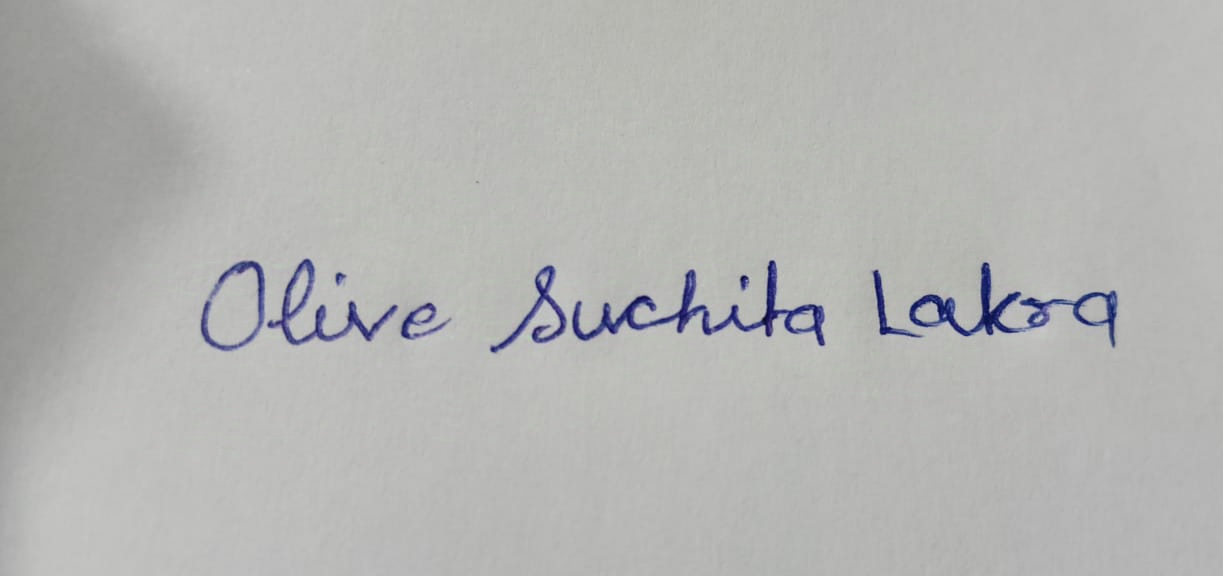 Olive Suchita Lakra